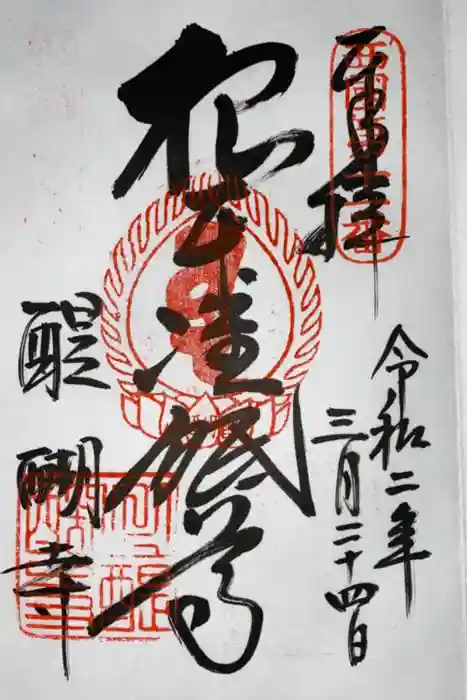 奉拝
西國第十一番
令和二年
三月二十四日
根本准胝尊
醍醐寺